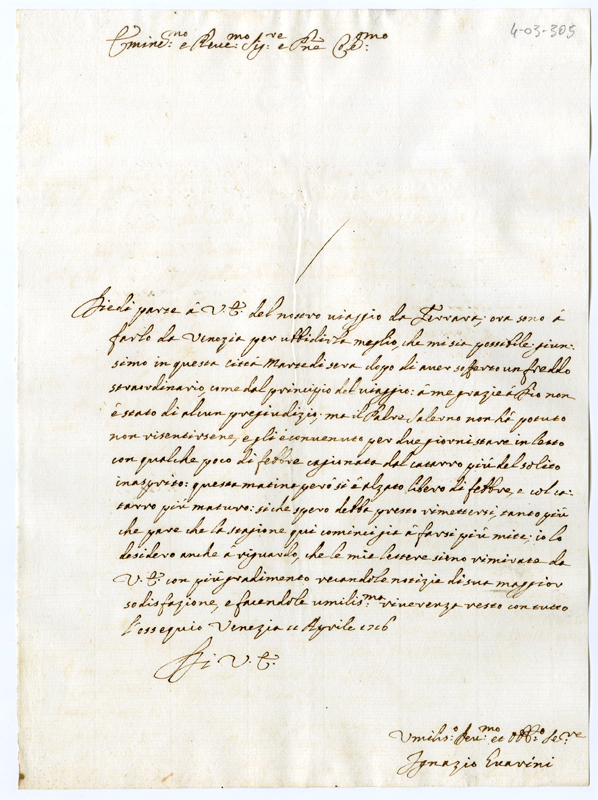 4-03-305
Emine:no e Reue:mo Sig:re e Pne Co:mo
Diedi parte à V.E. del nostro uiaggio da Ferrara; ora sono à
farlo da Venezia per ubbidirla meglio, che mi sia possibile: giun-
simo in questa città Martedi sera dopo di auer sofferto un freddo
straordinario, come dal principio del uiaggio: à me grazie à Dio non
è stato di alcun pregiudizio; ma il Padre Salerno non hà potuto
non risentirsene, e gli è conuenuto per due giorni stare in letto
con qualche poco di febbre cagionata dal catarro più del solito
inasprito: questa matina però si è alzato libero di febbre, e col ca-
tarro più maturo: si che spero debba presto rimettersi, tanto più
che pare che la stagione qui cominci già à farsi più mite: io lo
desidero anche à riguardo, che le mie lettere sieno rimirate da
V.E. con più gradimento recandole notizie di sua maggior
sodisfazione, e facendole umilis:ma riuerenza resto con tutto
l'ossequio Venezia 11 Aprile 1716
Di V.E.
Vmilis:o Deu:mo et Obb:o Se:re
Ignazio Guarini